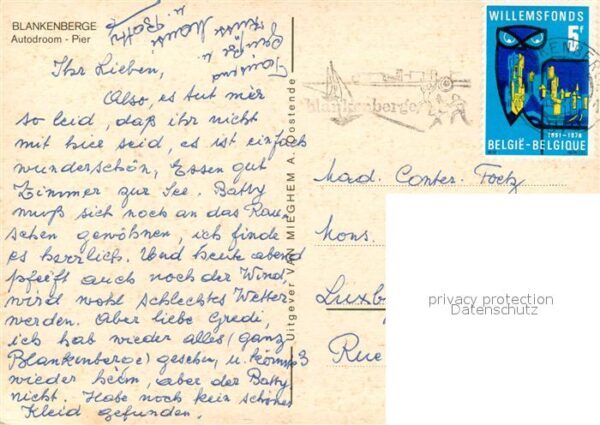 BLANKENBERGE
Autodroom - Pier
Tausend
Grüße u.
Küsse Mausi
u. Batty
Ihr Lieben,
Also, es tut mir
so leid, daß ihr nicht
mit hier seid, es ist einfach
wunderschön, Essen gut
Zimmer zur See. Batty
muß sich noch an das Rau-
schen gewöhnen, ich finde
es herrlich. Und heute abend
pfeift auch noch der Wind
wird wohl schlechtes Wetter
werden. Aber liebe Gredi,
ich hab wieder alles (ganz
Blankenberge) gesehen, u.
wieder heim, aber der Batty
nicht. Habe noch kein schönes
Kleid gefunden.
Uitgever VAN MIEGHEM A. Oostende
blankenberge
WILLEMSFONDS
5F
1851-1976
BELGIË-BELGIQUE
Mad. Conter.
Mons.
Luxb
Rue
privacy protection
Datenschutz